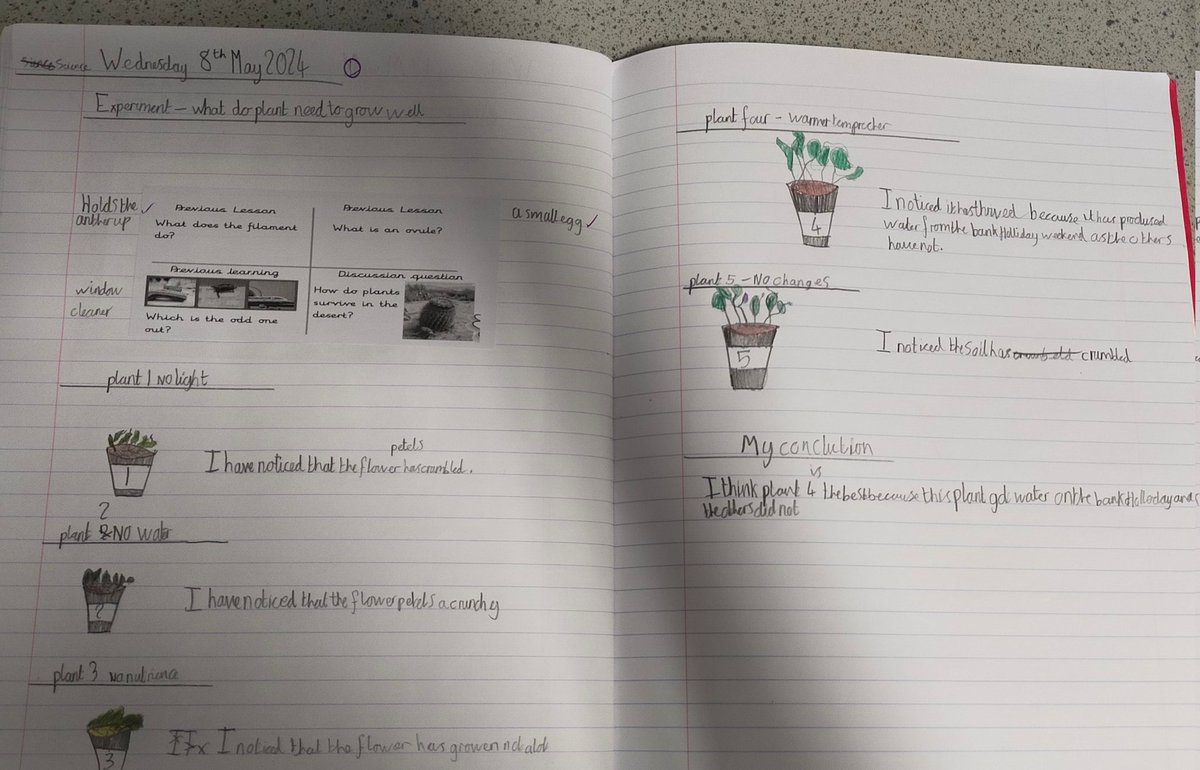 Science Wednesday 8th May 2024 1
Experiment - what do plant need to grow well
Holds the
anther up
Previous Lesson
What does the filament
do?
Previous Lesson
What is an ovule?
a small egg
window
cleaner
Previous learning
Which is the odd one
out?
Discussion question
How do plants
survive in the
desert?
plant 1 No light
1
petels
I have noticed that the flower has crumbled.
2
plant NO water
2
I have noticed that the flower petels a crunchy
plant 3
3
I noticed that the flower has growen not alot
plant four - warmer temprecher
4
I noticed it has thrived because it has prodused
water from the bank Holliday weekend as the others
have not.
plant 5 - No changes
5
I noticed the soil has crumbled
My conclution
is
I think plant 4 the best because this plant got water on the bank Holloday and
the others did not